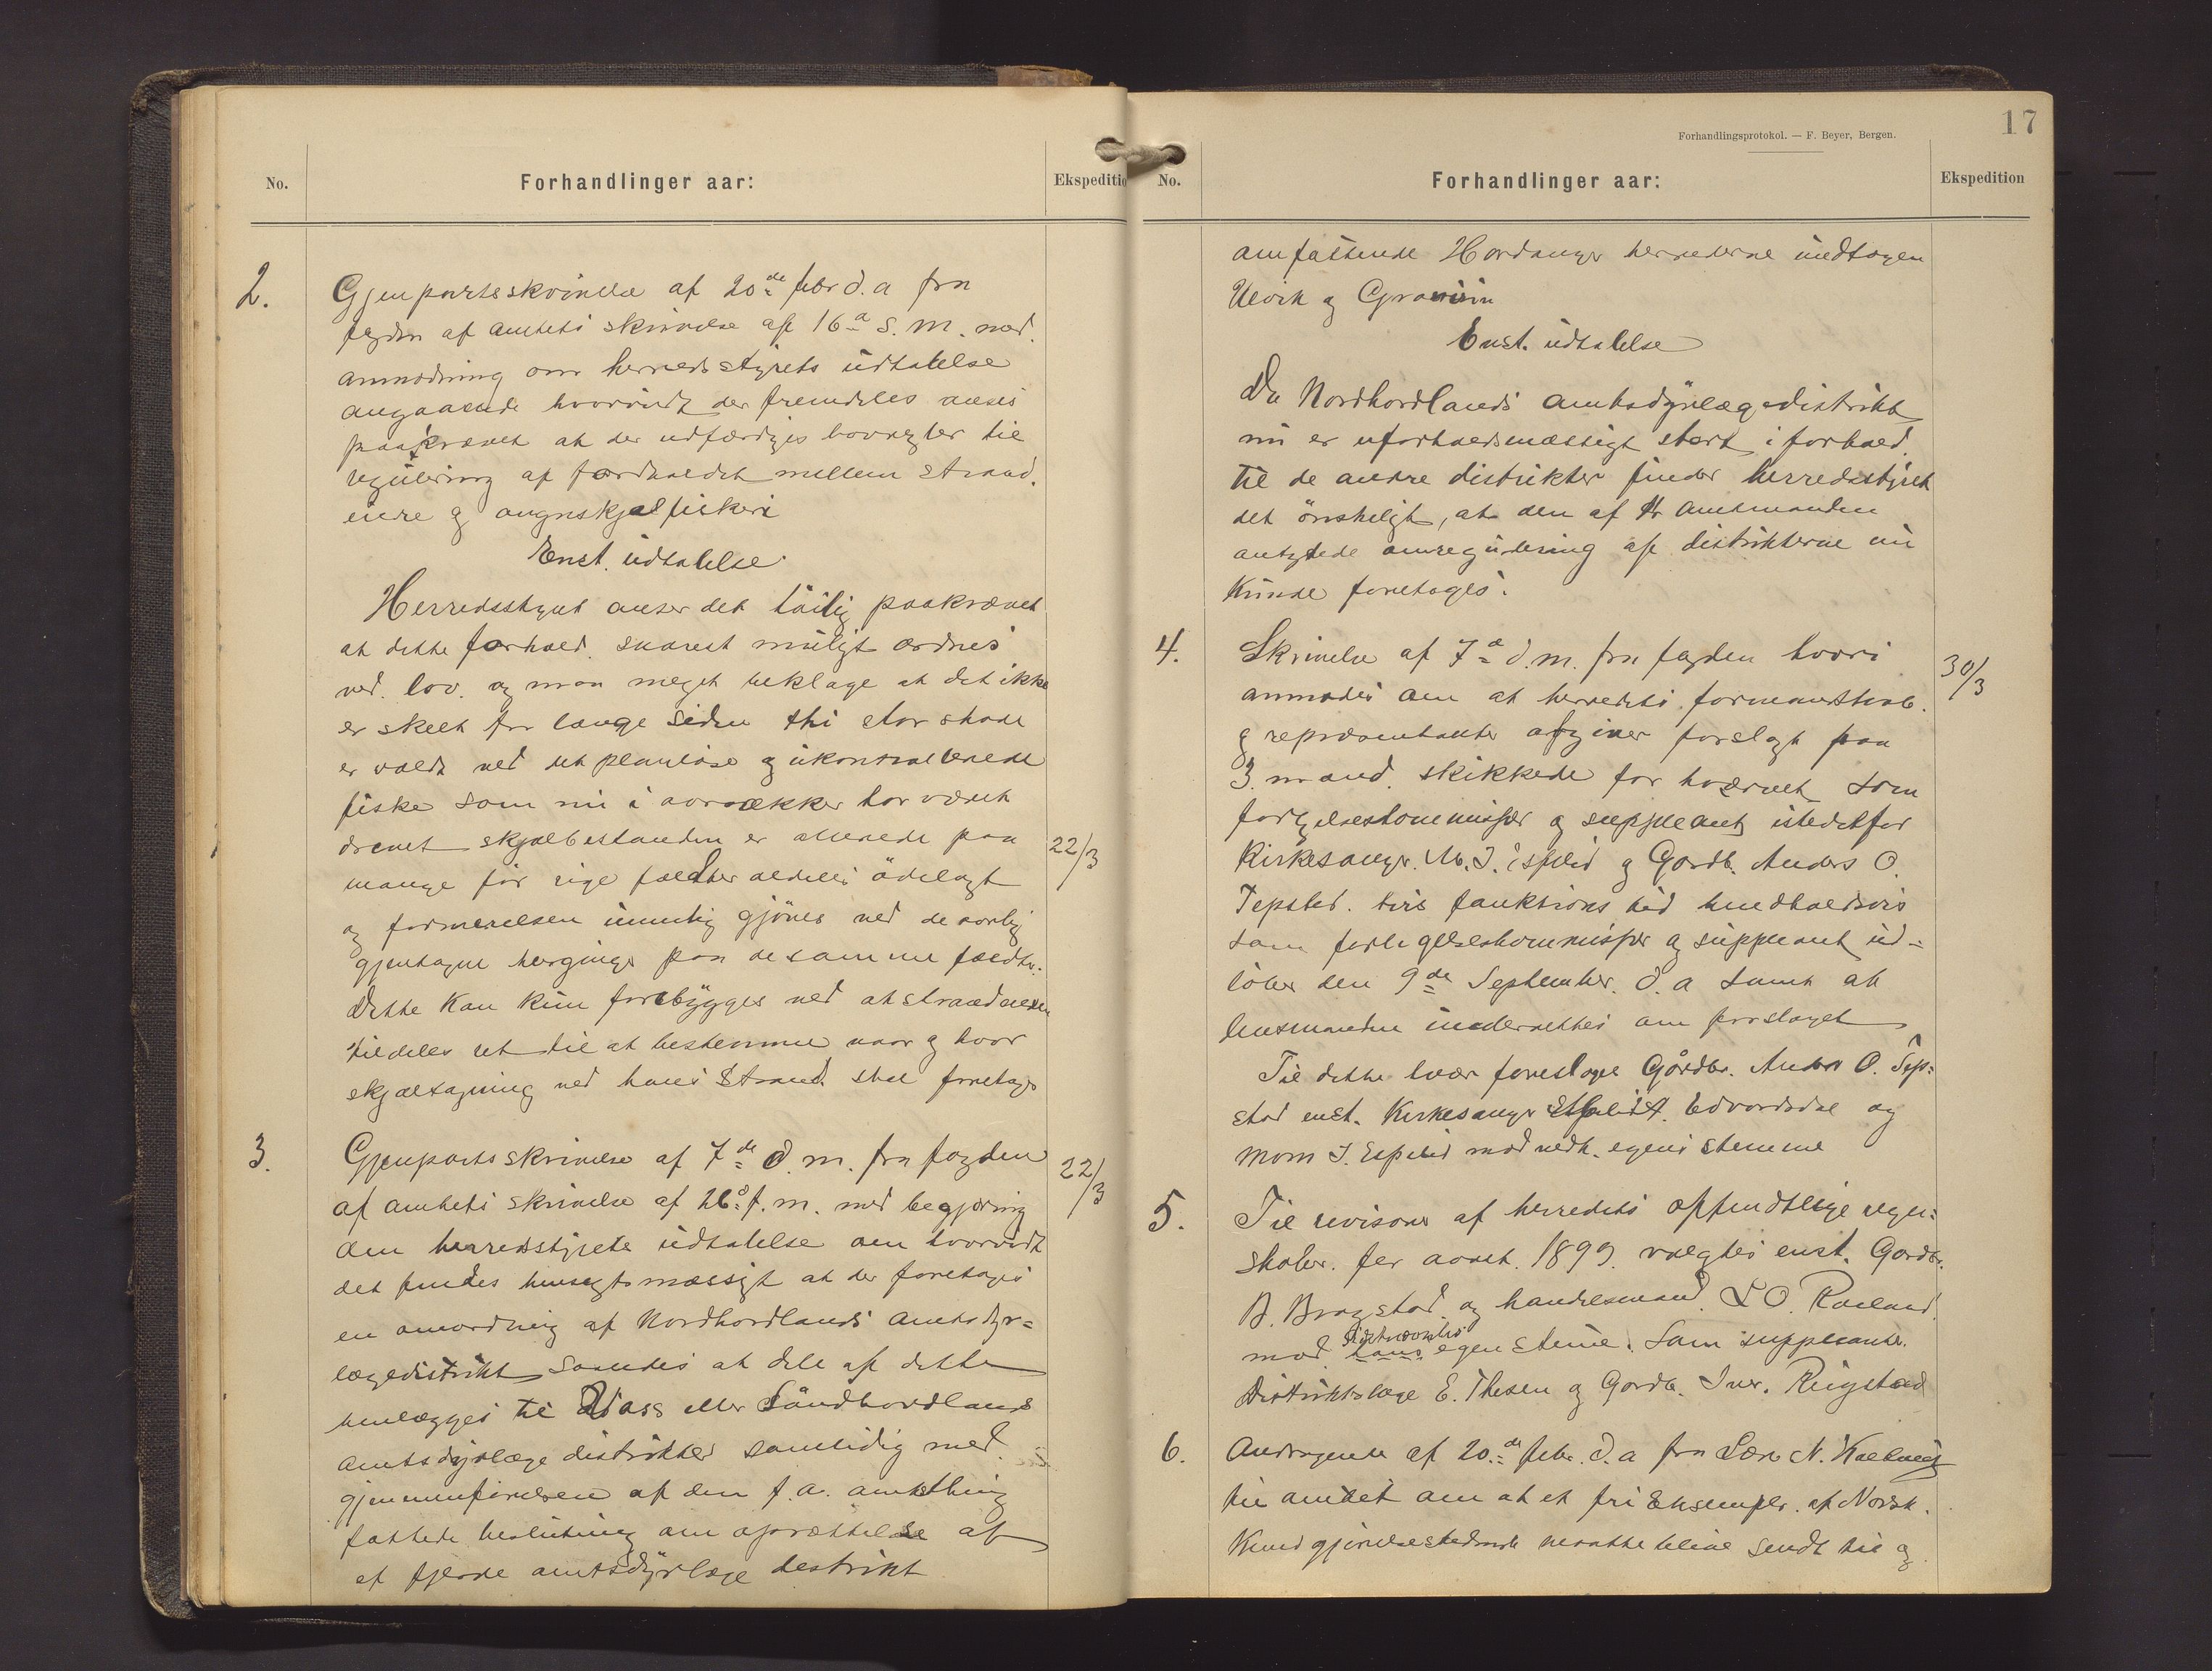 No.
Forhandlinger aar:
Ekspeditio
2.
Gjenpartsskrivelse af 20de febr d. a fra
fogden af amtets skrivelse af 16de s. m. med
anmodning om herredsstyrets udtalelse
angaaende hvorvidt der fremdeles anses
paakrævet at der udfærdiges lovregler til
regulering af fordholdet mellem strand
eiere og angnskjælfiskeri
Enst. udtalelse
Herredsstyret anser det høilig paakrævet
at dette forhold snarest muligt ordnes
ved lov. og maa meget beklage at det ikke
er skeet for længe siden thi stor skade
er voldt ved det planløse og ukontrollerede
fiske som nu i aarrækker har været
drevet skjælbestanden er allerede paa
22/3
mange før rige fældter aldeles ødelagt
og formerelsen umulig gjøres ved de aarlig
gjentagne herginger paa de samme fældter.
Dette kan kun forebygges ved at strandeieren
tildeles ret til at bestemme naar og hvor
skjæltagning ved hans Strand skal foretages
3.
Gjenpartsskrivelse af 7de d. m. fra fogden
22/3
af amtets skrivelse af 26de f. m. med begjæring
om herredsstyrets udtalelse om hvorvidt
det findes hensigtsmæssigt at der foretages
en omordning af Nordhordlands amtsdyr=
lægedistrikt saaledes at dele af dette
henlægges til Voss eller Søndhordlands
amtsdyrlæge distrikter samtidig med
gjennemførelsen af den f. a. amtsthing
fattede beslutning om oprættelse af
et fjerde amtsdyrlæge destrikt
Forhandlingsprotokol. — F. Beyer, Bergen.
17
No.
Forhandlinger aar:
Ekspedition
omfattende Hardanger herrederne undtagen
Ulvik og Granvin
Enst. udtalelse
Da Nordhordlands amtsdyrlægedistrikt
nu er uforholdsmæssigt stort i forhold
til de andre distrikter finder herredsstyret
det ønskeligt, at den af Hr Amtmanden
antydede omregulering af distrikterne nu
kunde foretages.
4.
Skrivelse af 7de d. m. fra fogden hvori
30/3
anmodes om at herredets formandskab
og repræsentanter afgiver forslagt paa
3 mænd skikkede for hvervet som
forligelseskommissær og suppleant istedetfor
Kirkesanger M. J. Espelid og Gardb. Anders O.
Tepstad. hvis funktions tid henholdsvis
som forligelseskommissær og suppleant ud=
løber den 9de September d. a samt at
lensmanden underrettes om forslaget
Til dette hver foresloges Gårdbr. Anders O. Tep=
stad enst. Kirkesanger A. Edvardsdal og
Mons J. Espelid mod vedk. egens stemme
5.
Til revisorer af herredets offendtlige regn=
skaber for aaret 1899 valgtes enst. Gardbr.
A. Bragstad og handelsmand L O. Rolland
mod
hans egen stemme. Som suppleanter.
Distriktslæge E. Thesen og Gardb. Iver. Rigstad
6.
Andragende af 20de febr. d. a fra N.
til amtet om at et fri Eksempl. af Norsk
Kundgjørelsestidende maatte blive sendt til og